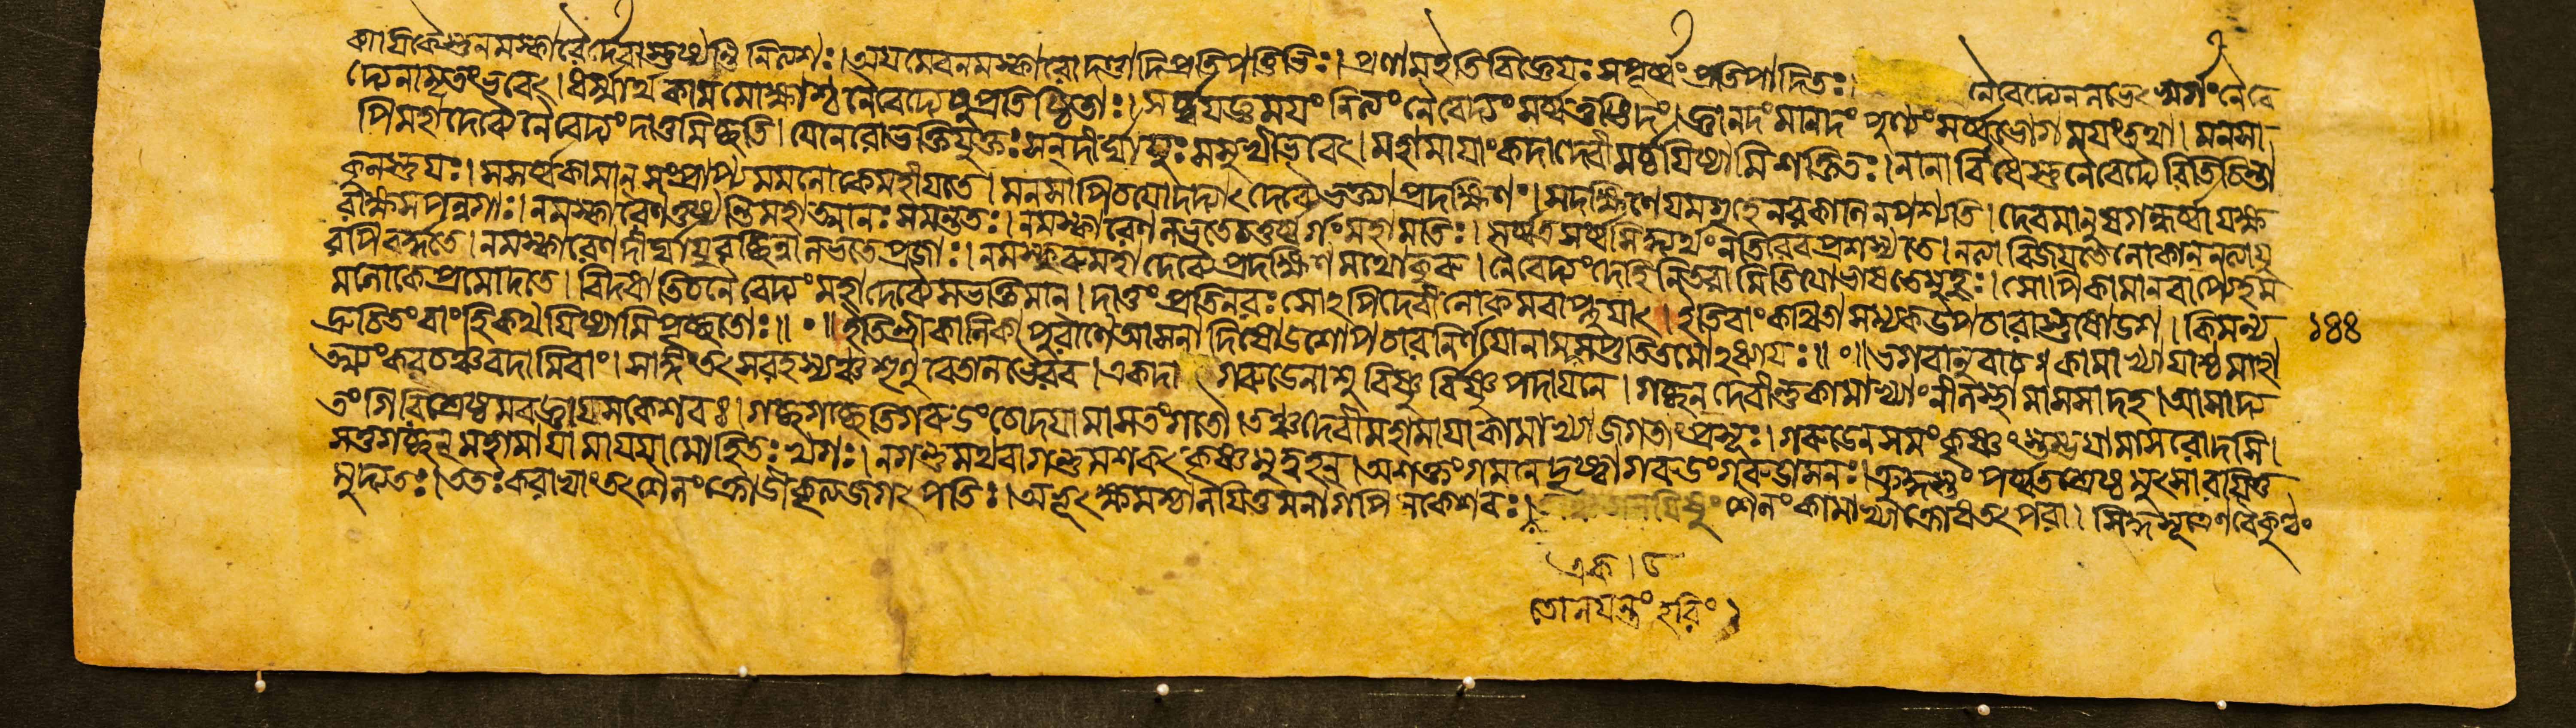 কায়িকৈস্তু নমস্কারৈর্দেবাস্তুষ্যন্তি নিত্যশঃ।অয়মেব নমস্কারো দণ্ডাদিপ্রতিপত্তিভিঃ।প্রণাম ইতি বিজ্ঞেয়ঃ স পূর্ব্বং প্রতিপাদিতঃ। নৈবেদ্যেন লভেৎ স্বর্গং নৈবে
দ্যেনামৃতং ভবেৎ।ধর্ম্মার্থকামমোক্ষাশ্চ নৈবেদ্যেষু প্রতিষ্ঠিতাঃ।সর্ব্বযজ্ঞময়ং নিত্যং নৈবেদ্যং সর্ব্বতুষ্টিদং।জ্ঞানদং মানদং পুণ্যং সর্ব্বভোগময়ং তথা।মনসা
পি মহাদেব্যৈ নৈবেদ্যং দাতুমিচ্ছতি।যো নরো ভক্তিযুক্তঃ সন্ দীর্ঘায়ুঃ স সুখী ভবেৎ।মহামায়াং কদা দেবীমর্চ্চয়িষ্যামি শক্তিতঃ।নানাবিধৈস্তু নৈবেদ্যৈরিতি চিন্তা
কুলস্তু যঃ।স সর্ব্বকামান্ সংপ্রাপ্য মম লোকে মহীয়তে।মনসাপি চ যো দদ্যাৎ দেব্যৈ ভক্ত্যা প্রদক্ষিণং।প্রদক্ষিণে যমগৃহে নরকাণি ন পশ্যতি।দেবমানুষগন্ধর্ব্বা যক্ষ
রাক্ষসপন্নগাঃ।নমস্কারেণ তুষ্যন্তি মহাত্মানঃ সমন্ততঃ।নমস্কারেণ লভতে চতুর্ব্বর্গং মহামতিঃ।সর্ব্বত্র সর্ব্বসিদ্ধ্যর্থং নতিরেব প্রশস্যতে।নত্যা বিজয়তে লোকান্ নত্যায়ু
রপি বর্দ্ধতে।নমস্কারেণ দীর্ঘায়ুরচ্ছিন্না লভতে প্রজাঃ।নমস্কুরু মহাদেব্যৈ প্রদক্ষিণমথো কুরু।নৈবেদ্যং দেহি নিতরামিতি যো ভাষতে মুহুঃ।সোপি কামানবাপ্যেহ ম
ম লোকে প্রমোদতে।বিদধাতি চ নৈবেদ্যং মহাদেব্যৈ স ভক্তিমান্।দাতুং প্রতি নরঃ সোঽপি দেবীলোকমবাপ্নুয়াৎ॥ইতি বাং কথিতা সম্যক্ উপচারাস্তু ষোড়শ।কিমন্য
দ্রুচিতং বাং হি কথয়িষ্যামি পৃচ্ছতোঃ॥০॥ইতি শ্রীকালিকাপুরাণে আসনাদিষোড়শোপচারনির্ণয়ো নাম সপ্ততিতমোঽধ্যায়ঃ॥০॥ভগবানুবাচ॥কামাখ্যায়াশ্চ মাহা
ত্ম্যং কবচঞ্চ বদামি বাং।সাঙ্গং তৎ সরহস্যঞ্চ শৃণু বেতাল ভৈরব।একদা গরুড়েনাশু বিষ্ণুর্বিষ্ণুপদায়নে।গচ্ছন্ দেবীন্তু কামাখ্যাং নীলস্থামাসসাদ হ।আসাদ্য
তং গিরিশ্রেষ্ঠমবজ্ঞায় স কেশবঃ।গচ্ছ গচ্ছেতি গরুড়ং চোদয়ামাস তং গতৌ।তঞ্চ দেবী মহামায়া কামাখ্যা জগতাং প্রসূঃ।গরুড়েন সমং কৃষ্ণং স্তম্ভয়ামাস রোদসি।
স তু গচ্ছন্ মহামায়ামায়য়া মোহিতঃ খগঃ।ন গন্তুমথবাগন্তুমশকৎ কৃষ্ণমুদ্বহন্।অশক্তং গমনে দৃষ্ট্বা গরুড়ং গরুড়াসনঃ।ক্রুদ্ধস্তং পর্ব্বতশ্রেষ্ঠমুৎসারয়িতু
মুদ্যতঃ।ততঃ করাভ্যাং তৎ শৈলং ক্রোড়ীকৃত্য জগৎপতিঃ।অভূৎ ক্ষমশ্চালয়িতুং মনাগপি ন কেশবঃ। শৈলং কামাখ্যা ক্রোধতৎপরা।সিদ্ধসূত্রেণ বৈকুণ্ঠং
১৪৪
এক।৮
তোলয়ন্তং হরিং১